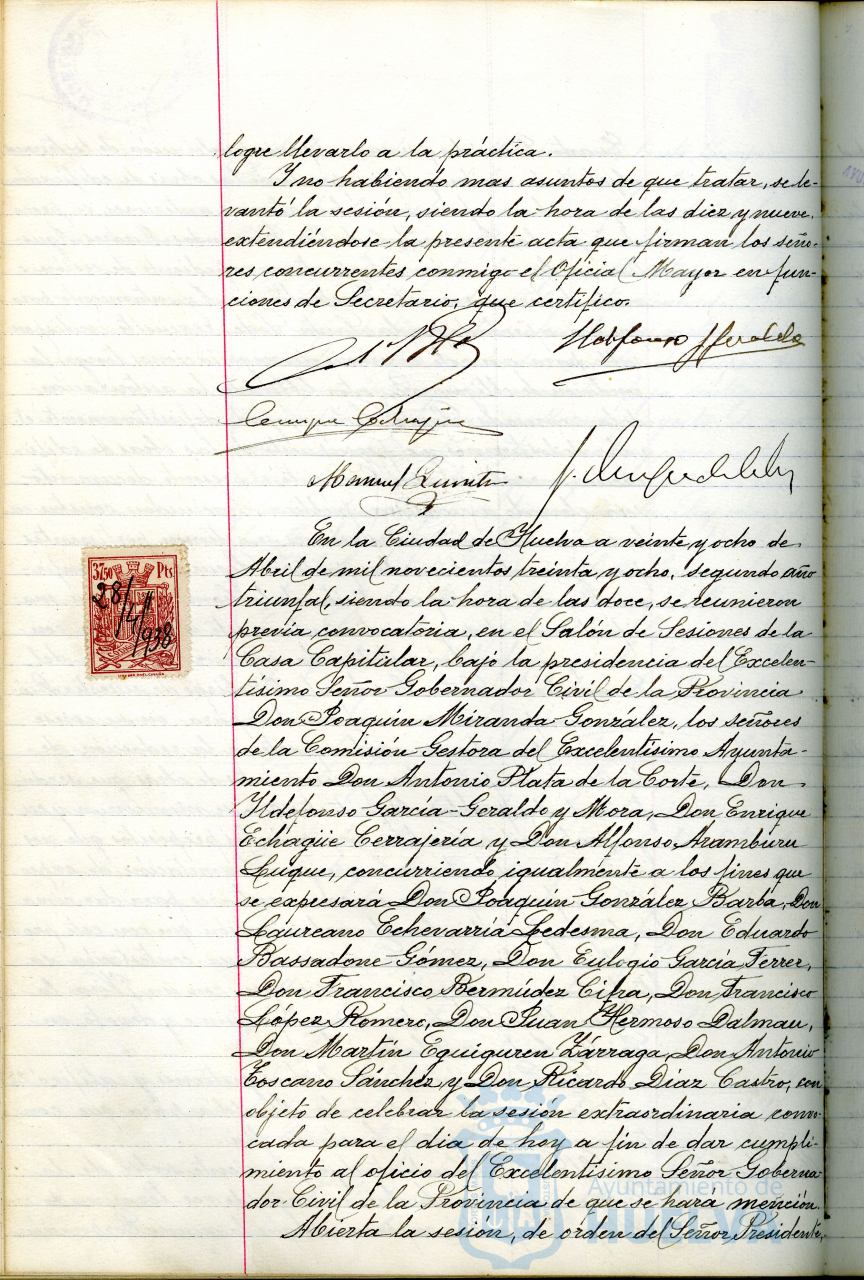 logre llevarlo a la práctica.
Y no habiendo mas asuntos de que tratar, se le-
vantó la sesión, siendo la hora de las diez y nueve,
extendiéndose la presente acta que firman los seño-
res concurrentes conmigo el Oficial Mayor en fun-
ciones de Secretario, que certifico.
Ildefonso Geraldo
Enrique Echagüe
Manuel
En la Ciudad de Huelva a veinte y ocho de
Abril de mil novecientos treinta y ocho, segundo año
triunfal, siendo la hora de las doce, se reunieron
previa convocatoria, en el Salón de Sesiones de la
Casa Capitular, bajo la presidencia del Excelen-
tísimo Señor Gobernador Civil de la Provincia
Don Joaquín Miranda González, los señores
de la Comisión Gestora del Excelentísimo Ayunta-
miento Don Antonio Plata de la Corte, Don
Ildefonso García-Geraldo y Mora, Don Enrique
Echagüe Cerrajería y Don Alfonso Aramburu
Luque, concurriendo igualmente a los fines que
se expresará Don Joaquín González Barba, Don
Laureano Echevarría Ledesma, Don Eduardo
Bassadone Gómez, Don Eulogio García Ferrer,
Don Francisco Bermúdez Cifra, Don Francisco
López Romero, Don Juan Hermoso Dalmau,
Don Martín Eguiguren Zárraga, Don Antonio
Toscano Sánchez y Don Ricardo Díaz Castro, con
objeto de celebrar la sesión extraordinaria convo-
cada para el dia de hoy a fin de dar cumpli-
miento al oficio del Excelentisimo Señor Goberna-
dor Civil de la Provincia de que se hara mención.
Abierta la sesión, de orden del Señor Presidente,
37'50 Pts.
28/4/938
Ayuntamiento de
HUELVA